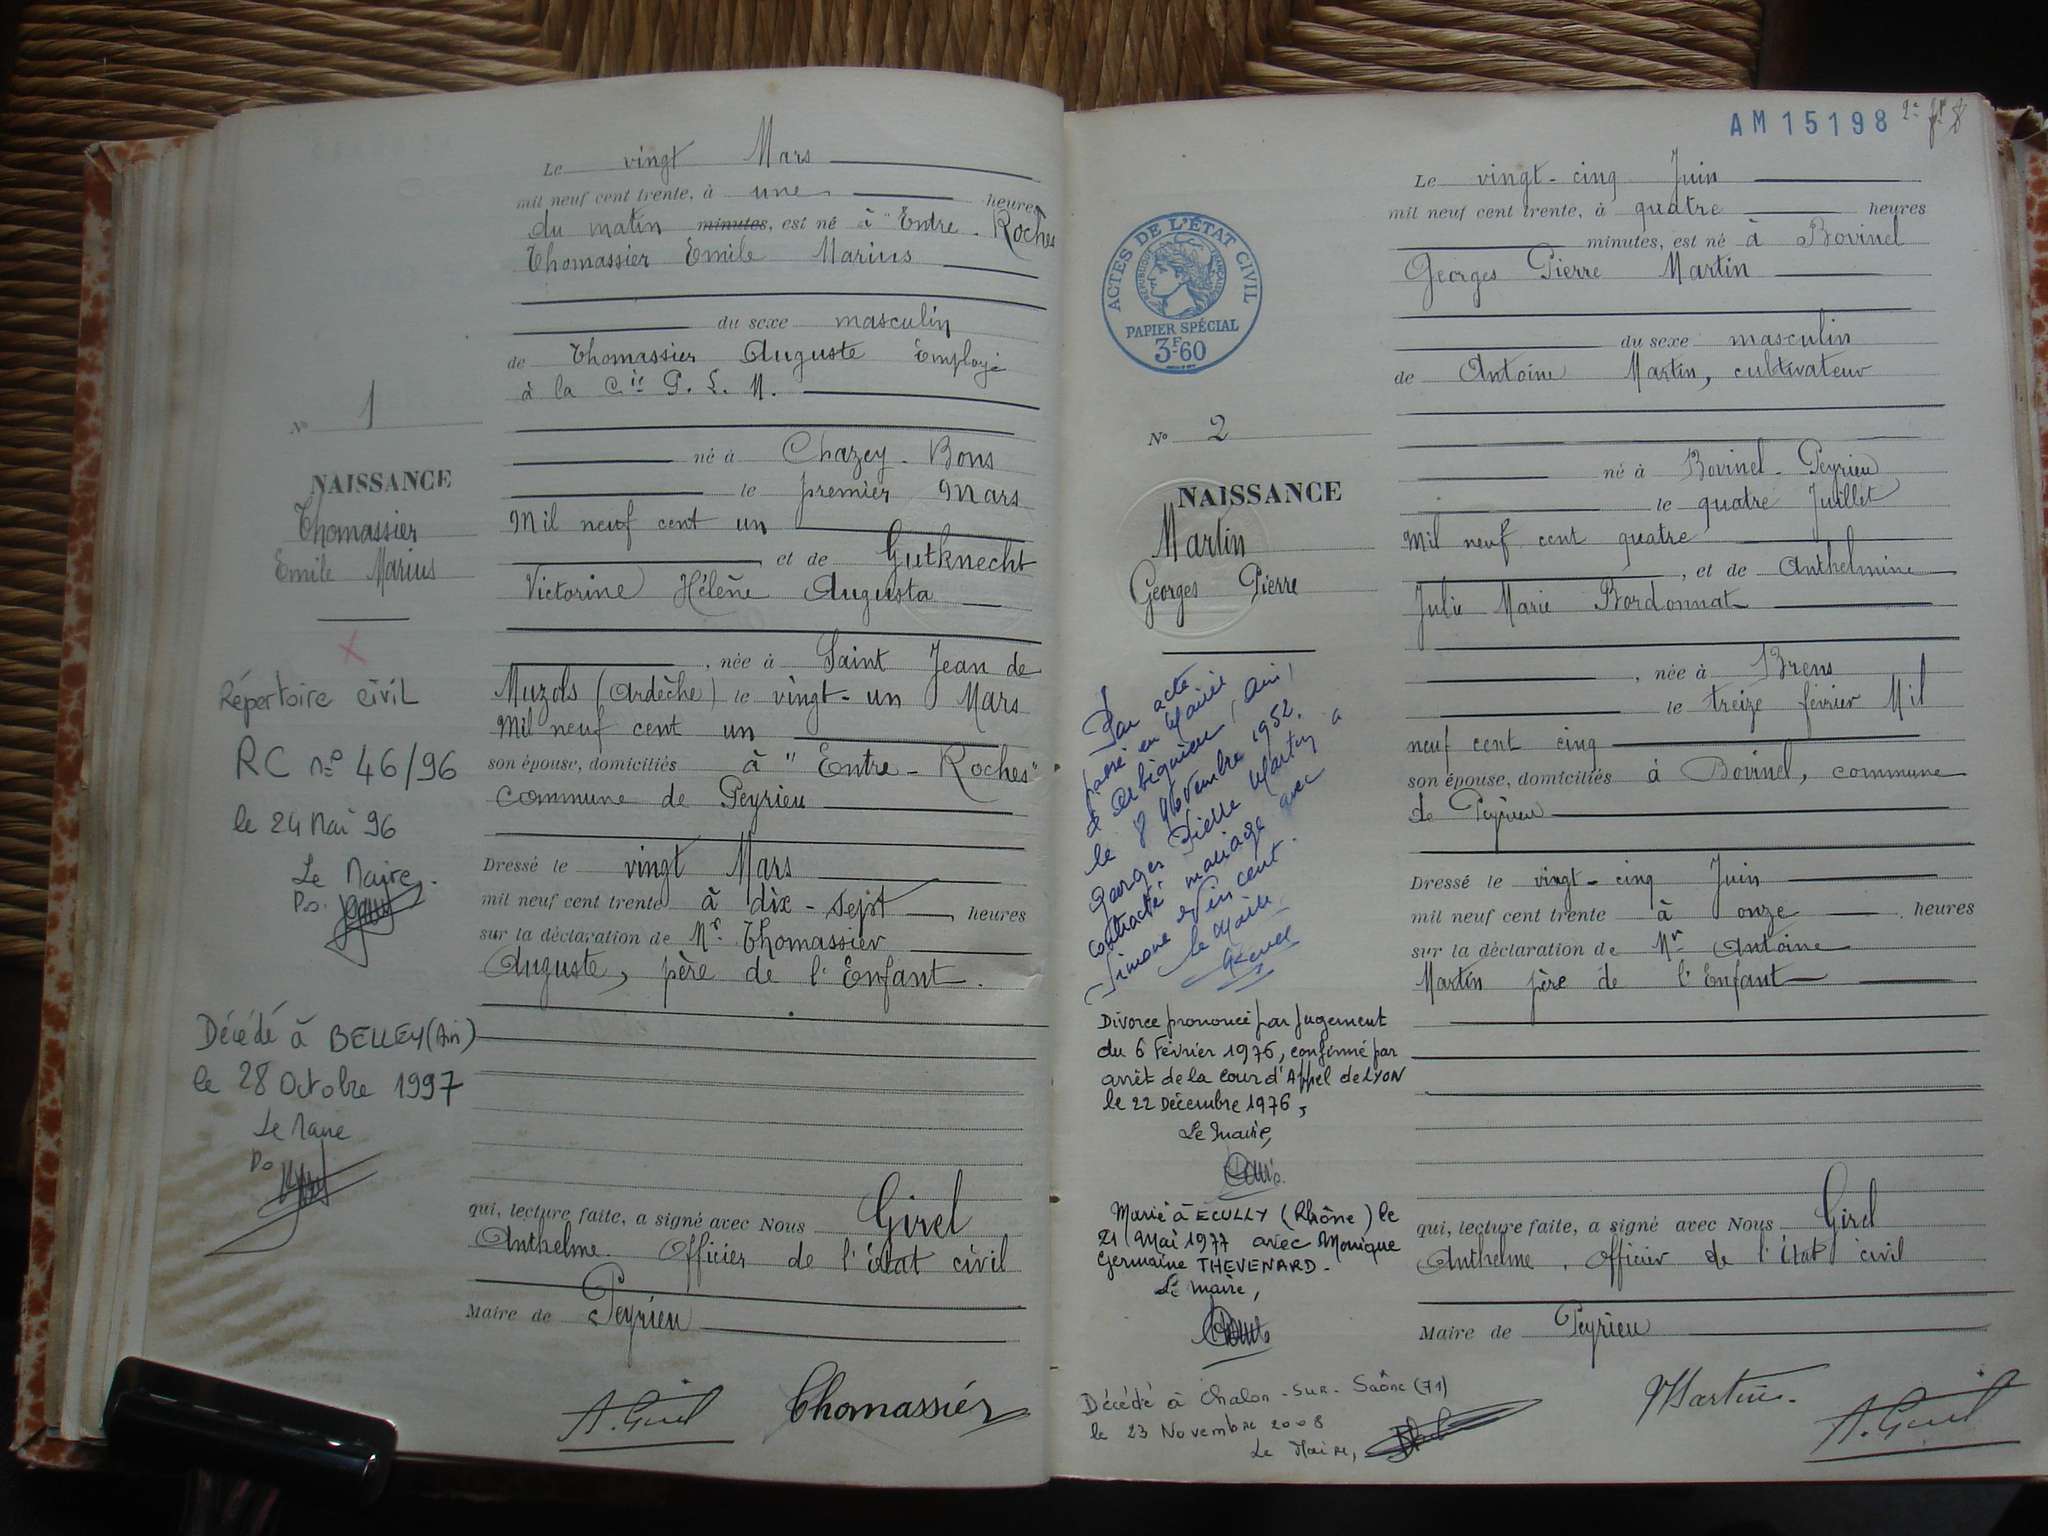 Le vingt Mars
mil neuf cent trente, à une heures
du matin minutes, est né à "Entre-Roches
Thomassier Emile Marius
du sexe masculin
de Thomassier Auguste Employé
à la Cie P. L. M.
né à Chazey-Bons
le premier Mars
Mil neuf cent un
et de Gutknecht
Victorine Hélène Augusta
, née à Saint Jean de
Muzols (Ardèche) le vingt-un Mars
Mil neuf cent un
son épouse, domiciliés à "Entre-Roches"
commune de Peyrieu
Dressé le vingt Mars
mil neuf cent trente à dix-sept heures
sur la déclaration de Mr. Thomassier
Auguste, père de l'Enfant.
qui, lecture faite, a signé avec Nous Girel
Anthelme. Officier de l'état civil
Maire de Peyrieu
A. Girel Thomassier
No 1
NAISSANCE
Thomassier
Emile Marius
X
Répertoire civil
RC no 46/96
le 24 Mai 96
Le Maire.
Po.
Décédé à BELLEY (Ain)
le 28 Octobre 1997
Le Maire
Po
AM 15198
Le vingt-cinq Juin
mil neuf cent trente, à quatre heures
minutes, est né à Bovinel
Georges Pierre Martin
du sexe masculin
de Antoine Martin, cultivateur
né à Bovinel-Peyrieu
le quatre Juillet
Mil neuf cent quatre
, et de Anthelmine
Julie Marie Bordonnat
, née à Brens
le treize février Mil
neuf cent cinq
son épouse, domiciliés à Bovinel, commune
de Peyrieu
Dressé le vingt-cinq Juin
mil neuf cent trente à onze heures
sur la déclaration de Mr Antoine
Martin père de l'Enfant
qui, lecture faite, a signé avec Nous Girel
Anthelme. Officier de l'état civil
Maire de Peyrieu
Martin. A. Girel
ACTES DE L'ÉTAT CIVIL
RÉPUBLIQUE FRANÇAISE
PAPIER SPÉCIAL
3F60
No 2
NAISSANCE
Martin
Georges Pierre
Par acte
passé en Mairie
d'Arbignieu (Ain)
le 8 Novembre 1952,
Georges Pierre Martin a
contracté mariage avec
Simone Vincent.
Le Maire
Divorce prononcé par jugement
du 6 Février 1976, confirmé par
arrêt de la Cour d'Appel de LYON
le 22 Décembre 1976,
Le Maire,
Marié à ECULLY (Rhône) le
21 Mai 1977 avec Monique
Germaine THEVENARD.
Le Maire,
Décédé à Chalon-sur-Saône (71)
le 23 Novembre 2008
Le Maire,